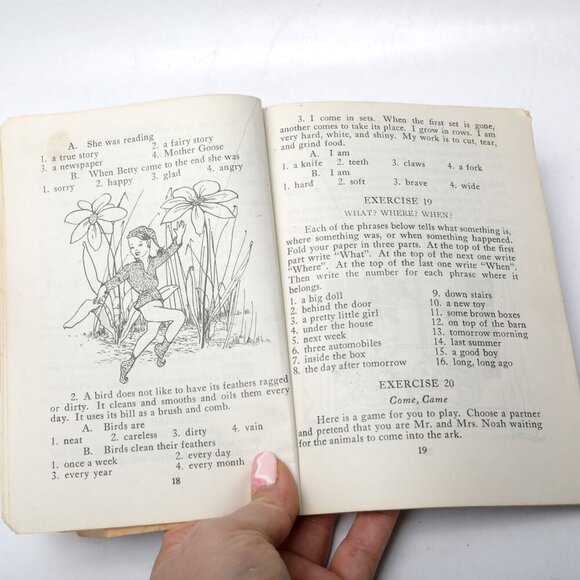 A. She was reading
1. a true story 2. a fairy story
3. a newspaper 4. Mother Goose
B. When Betty came to the end she was
1. sorry 2. happy 3. glad 4. angry
2. A bird does not like to have its feathers ragged
or dirty. It cleans and smooths and oils them every
day. It uses its bill as a brush and comb.
A. Birds are
1. neat 2. careless 3. dirty 4. vain
B. Birds clean their feathers
1. once a week 2. every day
3. every year 4. every month
18
3. I come in sets. When the first set is gone,
another comes to take its place. I grow in rows. I am
very hard, white, and shiny. My work is to cut, tear,
and grind food.
A. I am
1. a knife 2. teeth 3. claws 4. a fork
B. I am
1. hard 2. soft 3. brave 4. wide
EXERCISE 19
WHAT? WHERE? WHEN?
Each of the phrases below tells what something is,
where something was, or when something happened.
Fold your paper in three parts. At the top of the first
part write "What". At the top of the next one write
"Where". At the top of the last one write "When".
Then write the number for each phrase where it
belongs.
1. a big doll 9. down stairs
2. behind the door 10. a new toy
3. a pretty little girl 11. some brown boxes
4. under the house 12. on top of the barn
5. next week 13. tomorrow morning
6. three automobiles 14. last summer
7. inside the box 15. a good boy
8. the day after tomorrow 16. long, long ago
EXERCISE 20
Come, Came
Here is a game for you to play. Choose a partner
and pretend that you are Mr. and Mrs. Noah waiting
for the animals to come into the ark.
19